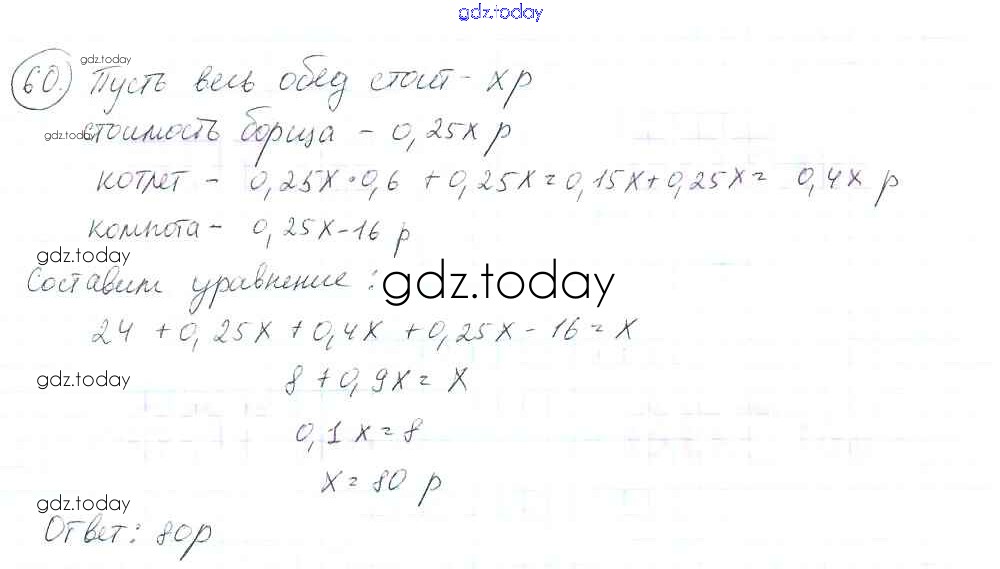 gdz.today
gdz.today
60. Пусть весь обед стоит - x р
gdz.today
стоимость борща - 0,25x р
котлет - 0,25x·0,6 + 0,25x = 0,15x + 0,25x = 0,4x р
компота - 0,25x - 16 р
gdz.today
Составим уравнение:
gdz.today
24 + 0,25x + 0,4x + 0,25x - 16 = x
gdz.today
8 + 0,9x = x
0,1x = 8
x = 80 р
gdz.today
Ответ: 80р